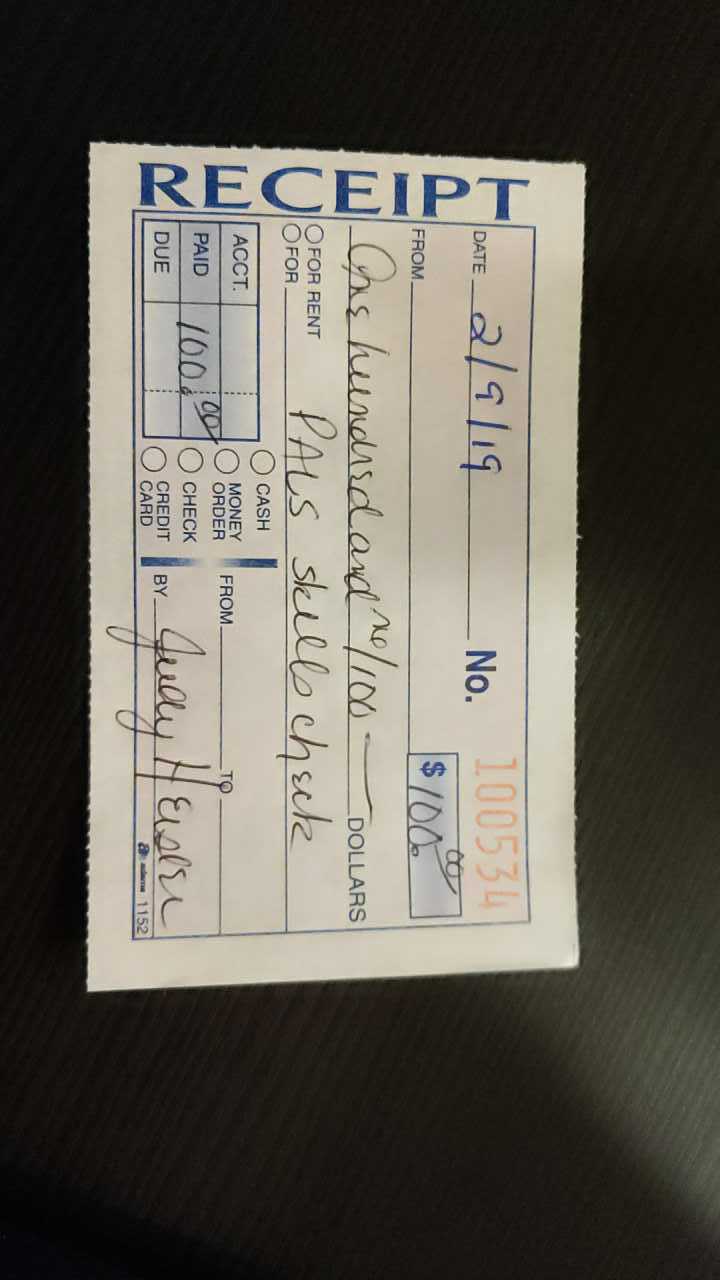 RECEIPT
DATE 2/9/19 No. 100534
FROM $100.00
One hundred and no/100 DOLLARS
FOR RENT
FOR PALS skills check
ACCT.
PAID 100.00
DUE
CASH
MONEY ORDER
CHECK
CREDIT CARD
FROM TO
BY Judy Heisler
adams 1152